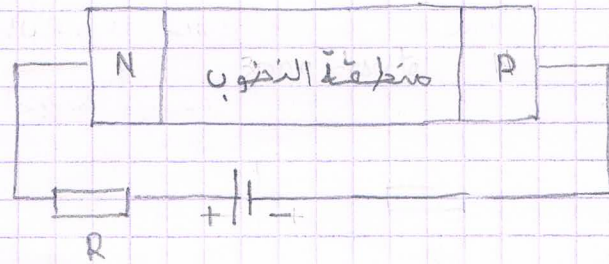 N منطقة النضوب P
+ -
R